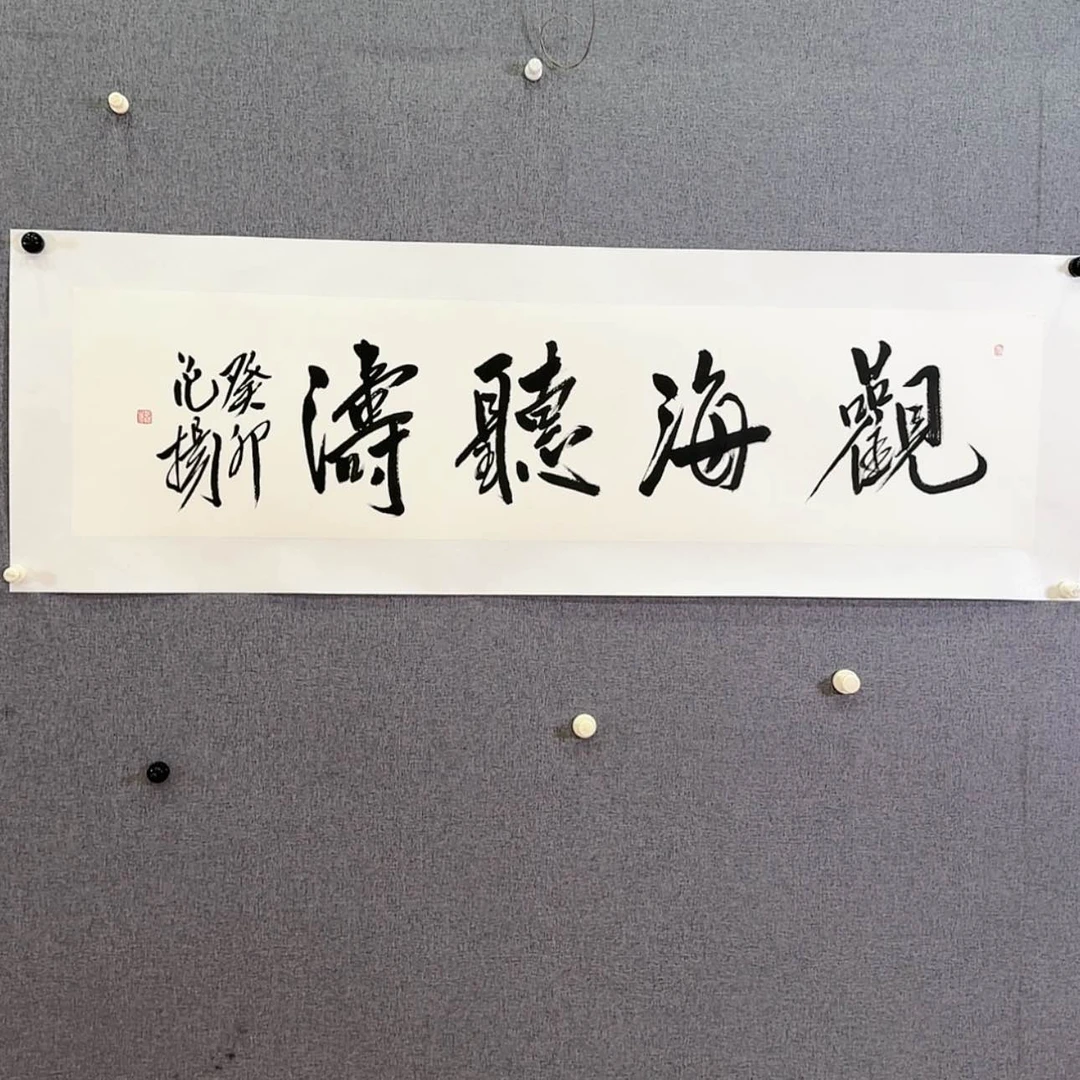 觀海聽濤
癸卯
范揚